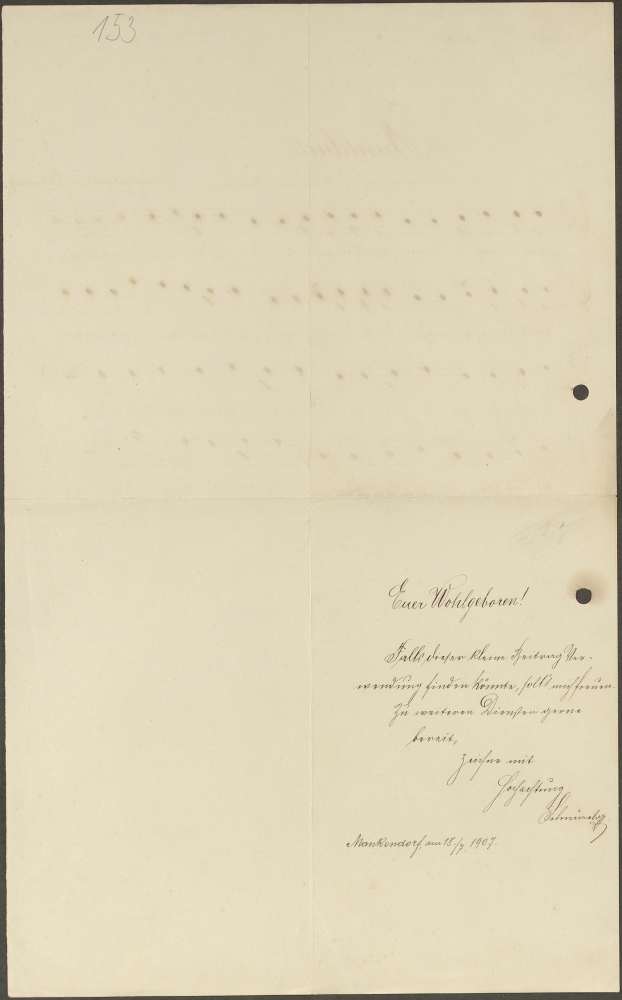 153
Euer Wohlgeboren!
Falls dieser kleine Beitrag Ver-
wendung finden könnte, soll's mich freuen.
Zu weiteren Diensten gerne
bereit,
zeichne mit
Hochachtung
Mankendorf, am 18./7. 1907.